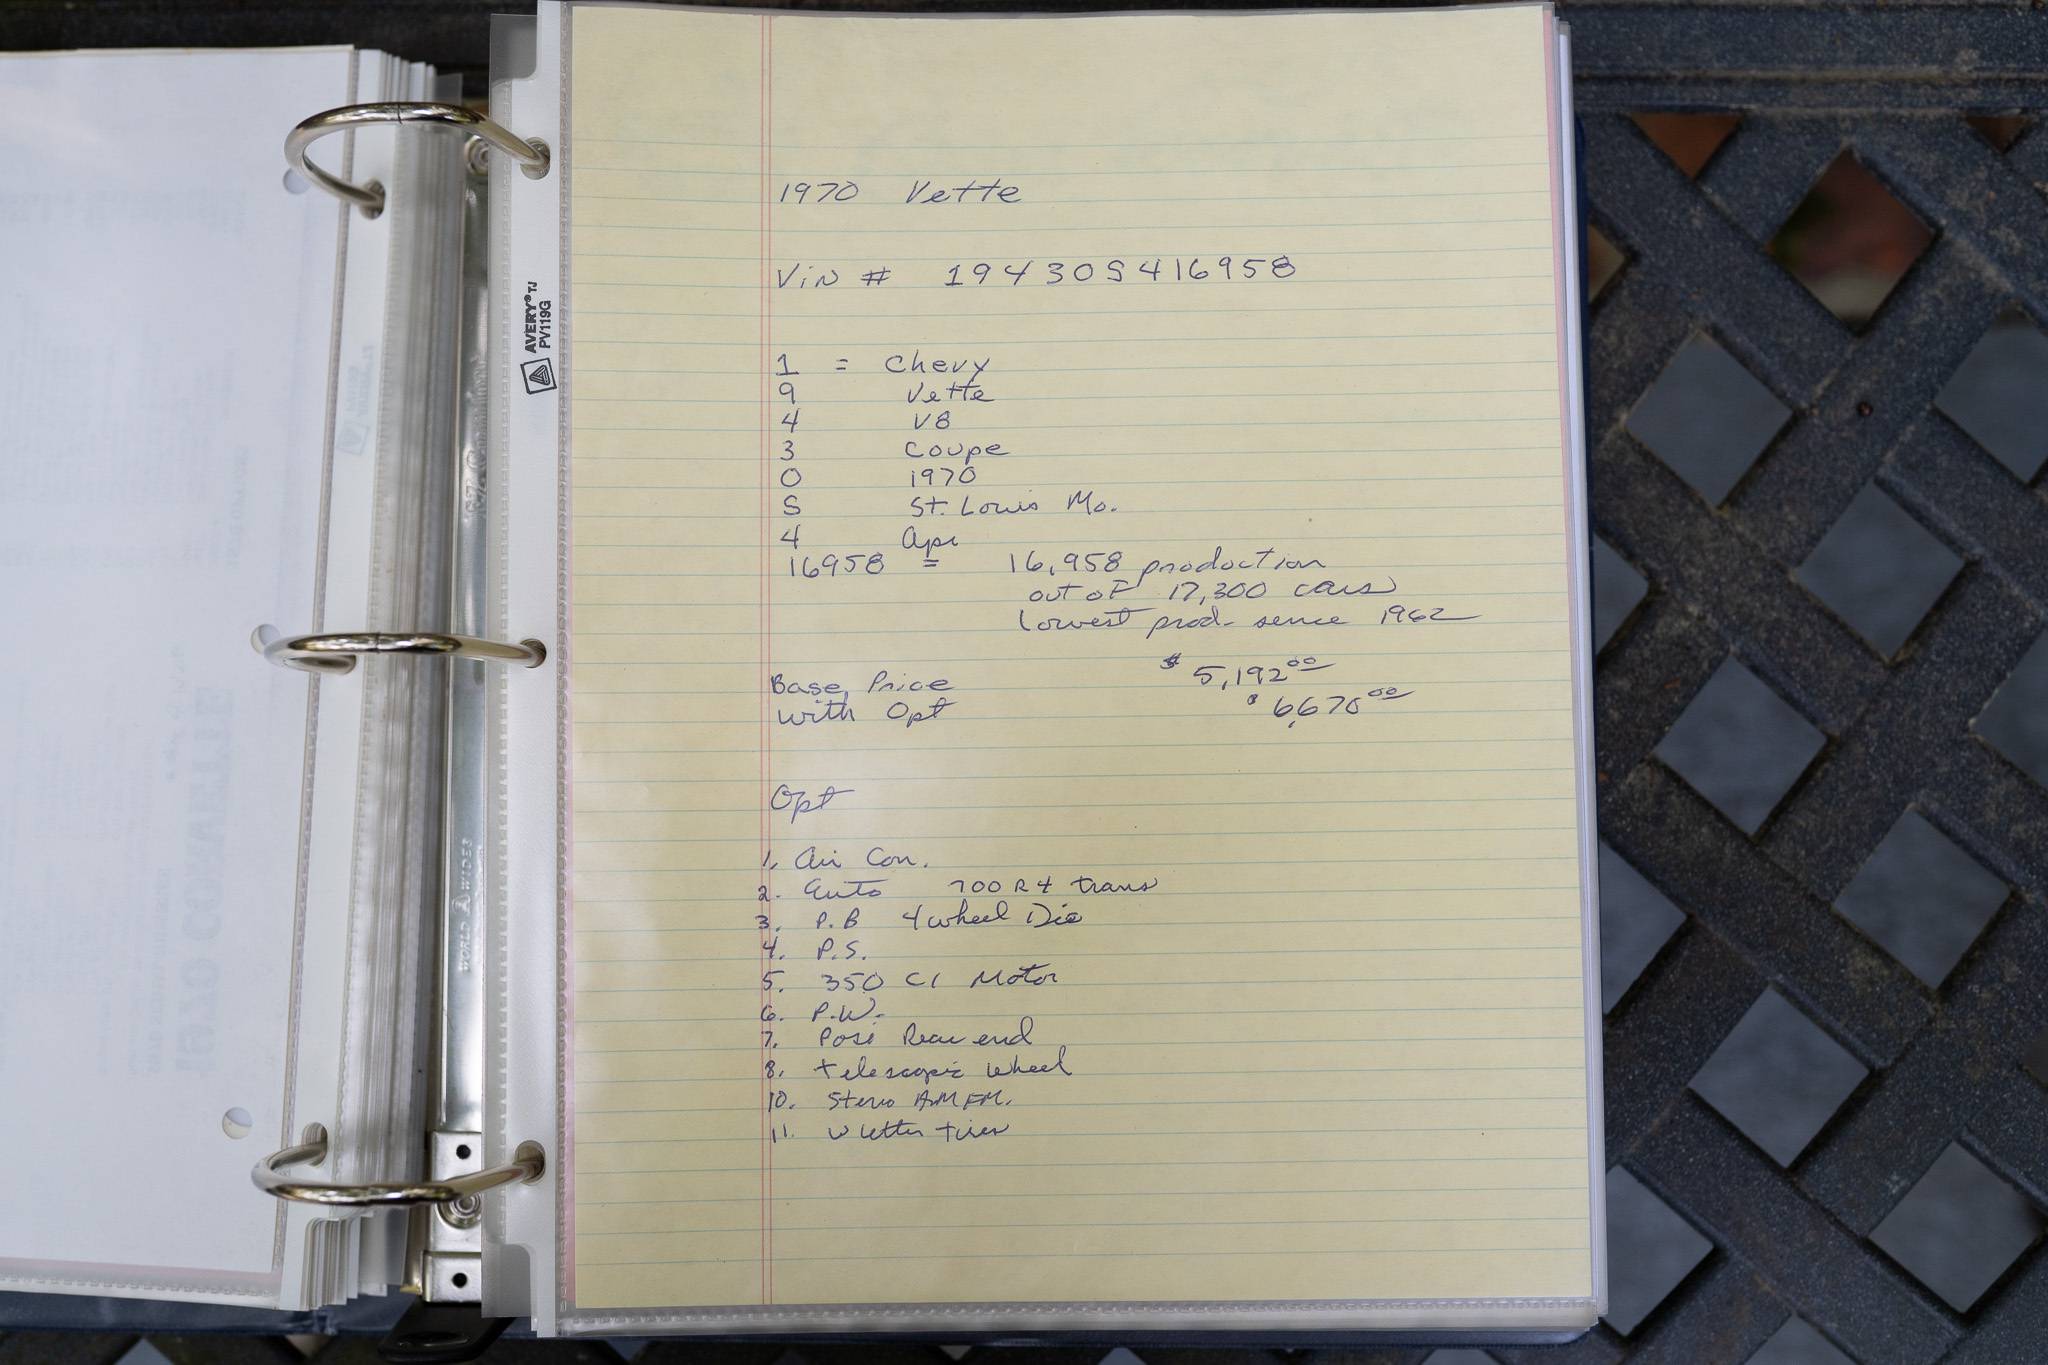 1970 Vette
Vin # 194305416958
1 = Chevy
9 Vette
4 V8
3 Coupe
0 1970
S St. Louis Mo.
4 Apr
16958 = 16,958 production
out of 17,300 cars
lowest prod. sence 1962
Base Price $5,192.00
with Opt $6,670.00
Opt
1. Air Con.
2. Auto 700 R4 trans
3. P.B 4 wheel Dis
4. P.S.
5. 350 CI Motor
6. P.W.
7. Posi Rear end
8. telescopic wheel
10. Stereo AM FM.
11. W letter tires
AVERY® TJ
PV119G
WORLD WIDES